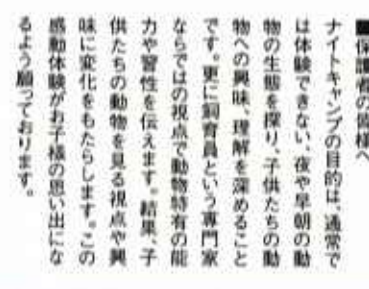 ■保護者の皆様へ
ナイトキャンプの目的は、通常で
は体験できない、夜や早朝の動
物の生態を探り、子供たちの動
物への興味、理解を深めること
です。更に飼育員という専門家
ならではの視点で動物特有の能
力や習性を伝えます。結果、子
供たちの動物を見る視点や興
味に変化をもたらします。この
感動体験がお子様の思い出にな
るよう願っております。